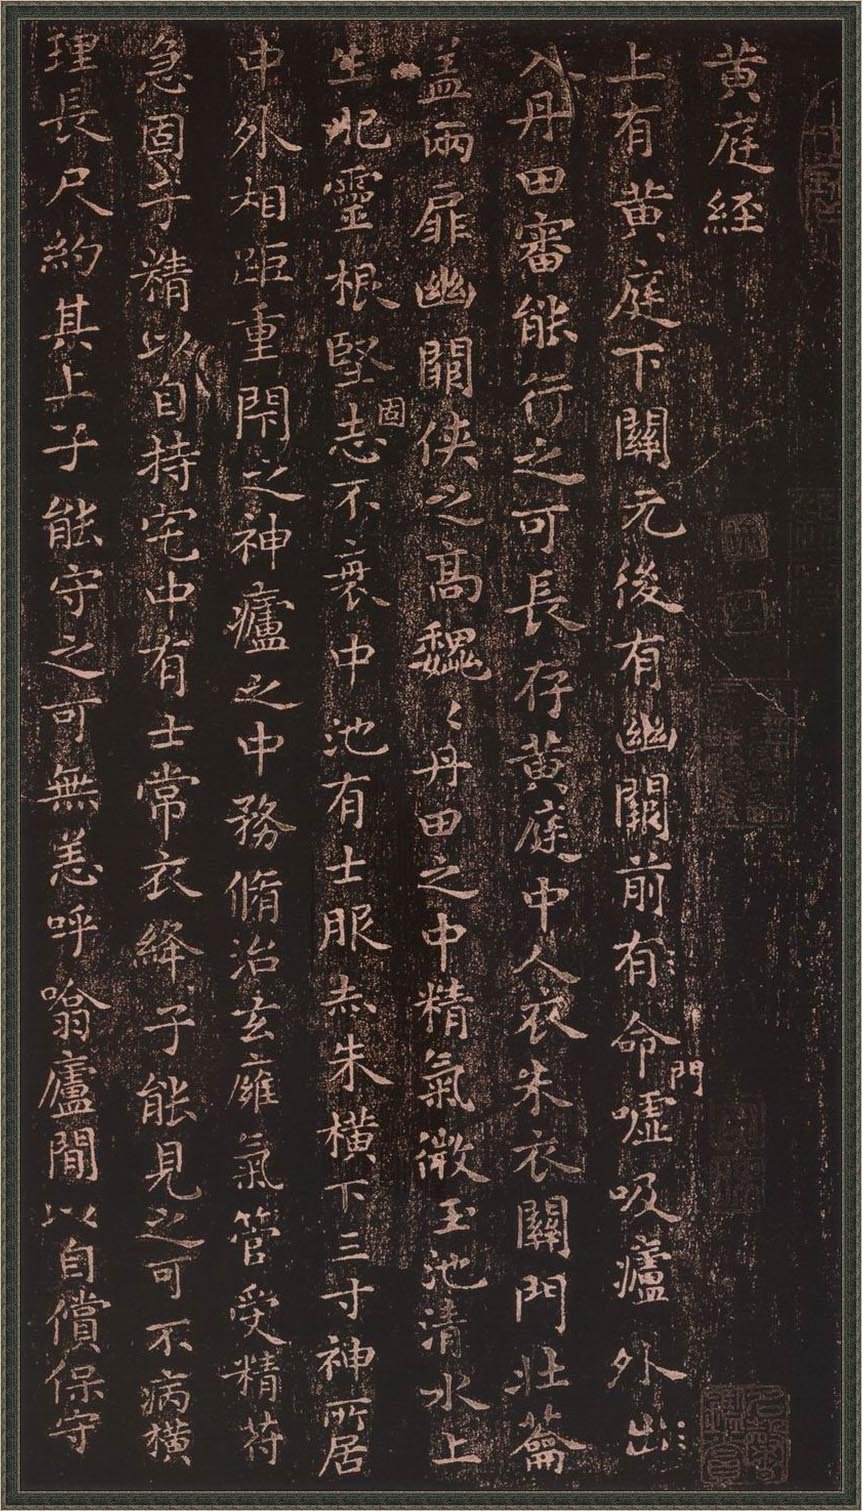 黄庭經
上有黄庭下關元後有幽闕前有命門嘘吸廬外出
入丹田審能行之可長存黄庭中人衣朱衣關門壯蘥
盖兩扉幽闕俠之高魏〻丹田之中精氣微玉池清水上
生肥靈根堅固志不衰中池有士服赤朱橫下三寸神所居
中外相距重閇之神廬之中務脩治玄㢕氣管受精苻
急固子精以自持宅中有士常衣絳子能見之可不病橫
理長尺約其上子能守之可無恙呼噏廬間以自償保守